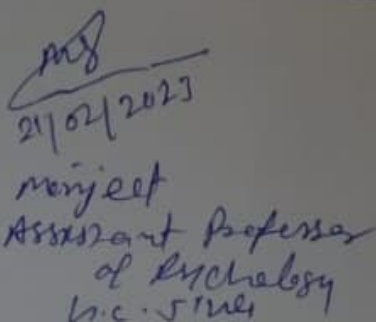 21/02/2023
Manjeet
Assistant Professor
of Psychology